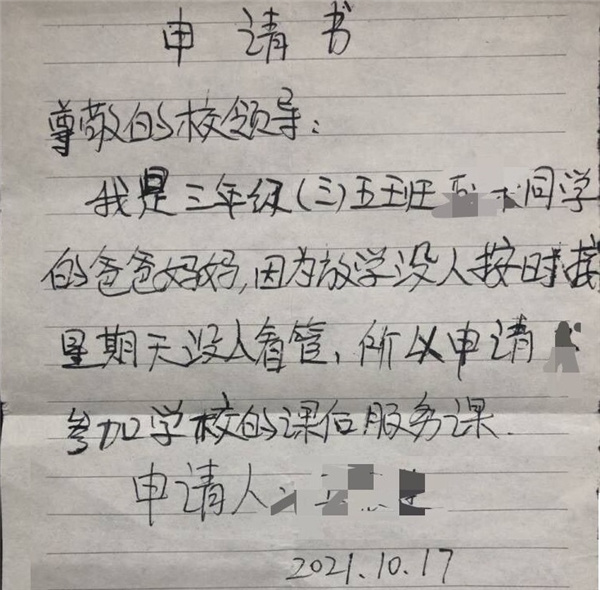 申请书
尊敬的校领导：
我是三年级(三)五班 同学
的爸爸妈妈,因为放学没人按时接
星期天没人看管,所以申请
参加学校的课后服务课.
申请人:
2021.10.17